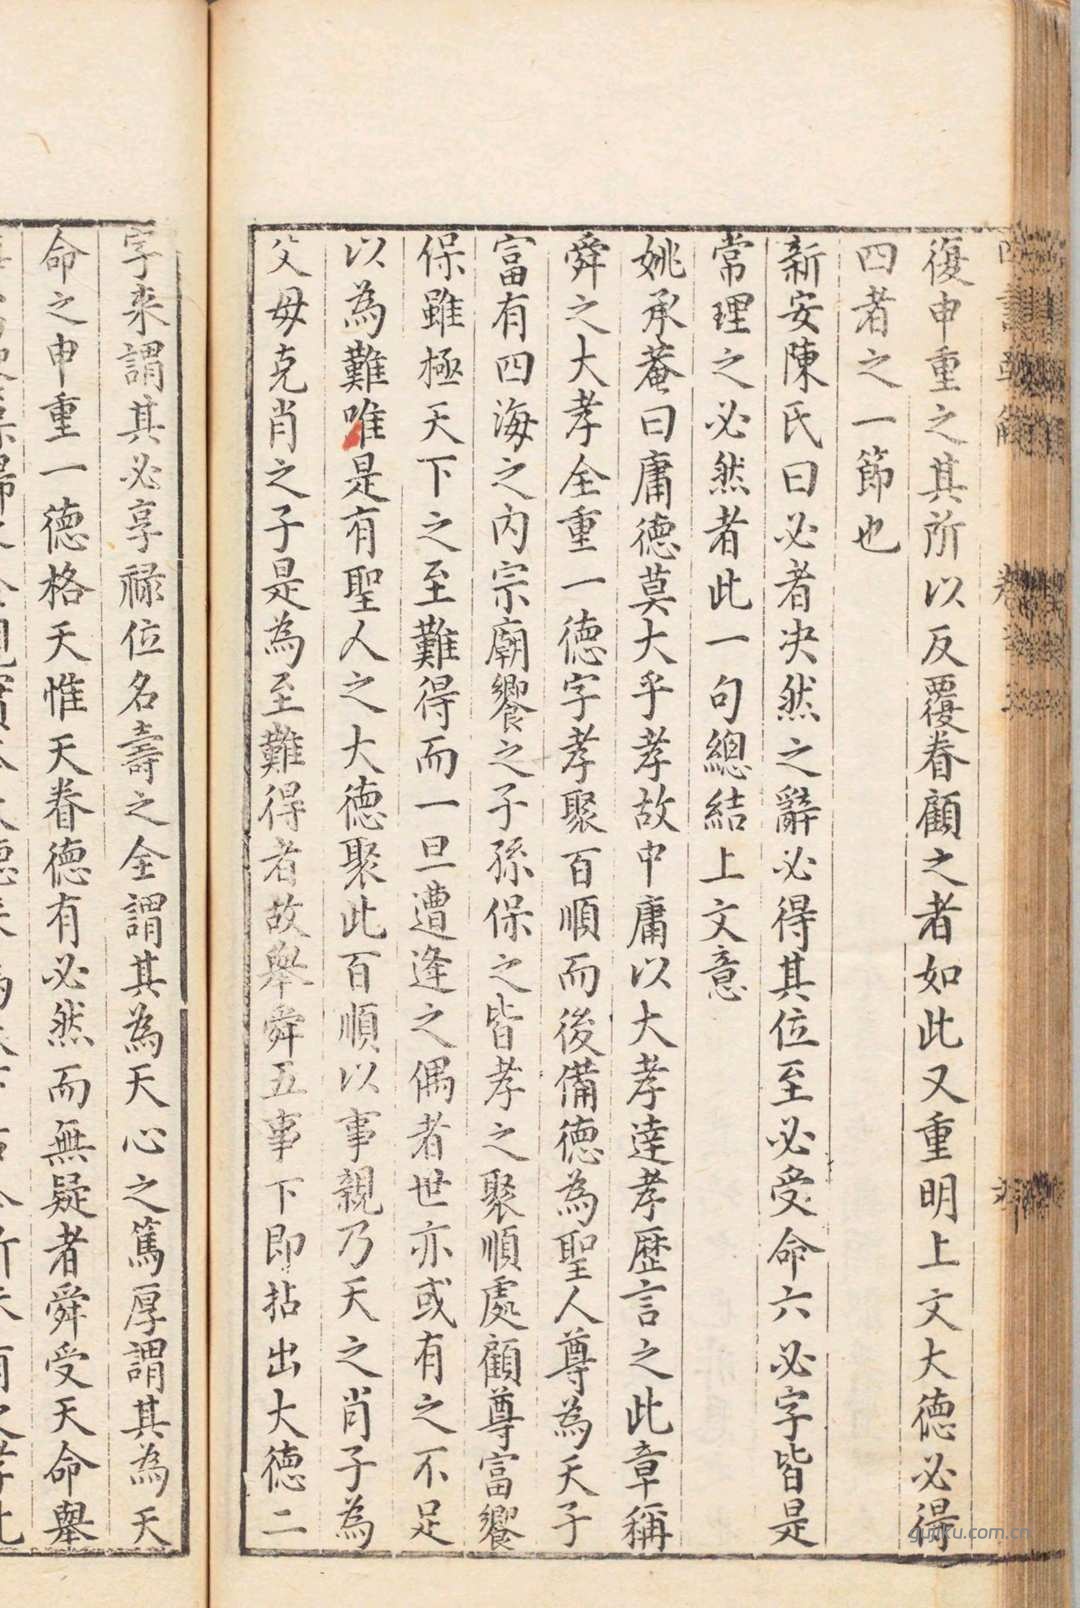 復申重之其所以反覆眷顧之者如此又重明上文大德必得
四者之一節也
新安陳氏曰必者决然之辭必得其位至必受命六必字皆是
常理之必然者此一句總結上文意
姚承菴曰庸德莫大乎孝故中庸以大孝達孝歷言之此章稱
舜之大孝全重一德字孝聚百順而後備德為聖人尊為天子
富有四海之内宗廟饗之子孫保之皆孝之聚順處顧尊富饗
保雖極天下之至難得而一旦遭逢之偶者世亦或有之不足
以為難唯是有聖人之大德聚此百順以事親乃天之肖子為
父母克肖之子是為至難得者故舉舜五事下即拈出大德二
字來謂其必享祿位名壽之全謂其為天心之篤厚謂其為天
命之申重一德格天惟天眷德有必然而無疑者舜受天命舉
gunku.com.cn